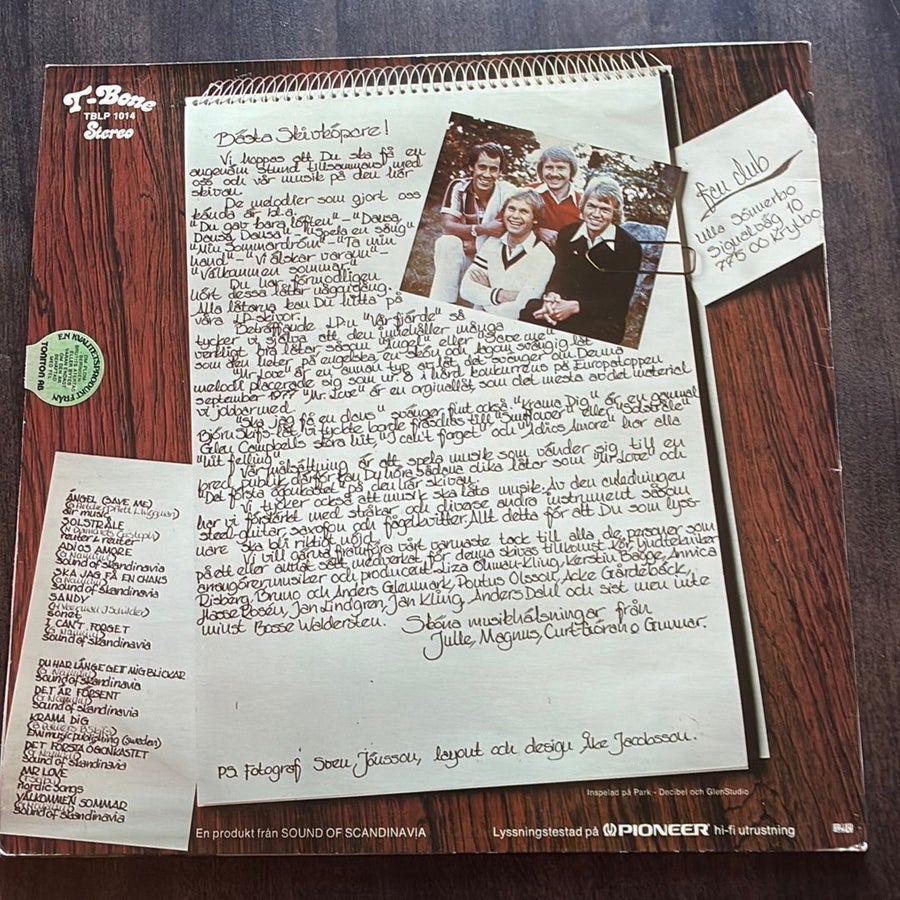 T-Bone
TBLP 1014
Stereo
Bästa Skivköpare!
Vi hoppas att Du ska få en
angenäm stund tillsammans med
oss och vår musik på den här
skivan.
De melodier som gjort oss
kända är bl.a.
"Du gav bara löften" - "Dansa,
Dansa, Dansa" - "Spela en sång"
"Min Sommardröm" - "Ta min
hand" - "Vi älskar varann" -
"Välkommen sommar"
Du har förmodligen
hört dessa låtar någongång.
Alla låtarna kan Du hitta på
våra LP-skivor.
Beträffande LP:n "Vår fjärde" så
tycker vi själva att den innehåller många
verkligt bra låtar såsom "Ängel" eller "Save me"
som den heter på engelska en skön och lagom svängig låt
"Mr Love" är en annan typ av låt det svänger om Denna
melodi placerade sig som nr. 8 i hård konkurrens på Europatoppen
september 1977 "Mr. Love" är en orginallåt, som det mesta av det material
vi jobbar med
"Ska jag få en chans" svänger fint också "Krama Dig" är en gammal
Björn Skifs låt vi tyckte borde fräschas till "Sunflower" eller "Solstråle"
Glen Campbells stora hit, "I can't forget" och "Adios Amore" har alla
"hit feeling"
Vår målsättning är att spela musik som vänder sig till en
bred publik därför kan Du höra sådana olika låtar som "Mr Love" och
"Det första ögonkastet" på den här skivan.
Vi tycker också att musik ska låta musik. Av den anledningen
har vi förstärkt med stråkar och diverse andra instrument såsom
steel-guitar, saxofon och fågelkvitter. Allt detta för att Du som lyss-
nare ska bli riktigt nöjd.
Vi vill gärna framföra vårt varmaste tack till alla de personer som
på ett eller annat sätt medverkat för denna skivas tillkomst
arrangörer musiker och producent. Liza Öhman-Kling, Kerstin Bagge, Annica
Risberg, Bruno och Anders Glenmark, Pontus Olsson, Acke Gårdebäck,
Hasse Rosén, Jan Lindgren, Jan Kling, Anders Dahl och sist men inte
minst Bosse Waldersten.
Sköna musikhälsningar från
Julle, Magnus, Curt-Göran o Gunnar.
PS. Fotograf Sven Jönsson, layout och design Åke Jacobsson.
fan club
Ulla Sönnerbo
Signalväg 10
775 00 Krylbo
EN KVALITETSPRODUKT FRÅN
TONTON AB
ÄNGEL (SAVE ME)
air music
SOLSTRÅLE
reuter & reuter
ADIOS AMORE
Sound of Skandinavia
SKA JAG FÅ EN CHANS
Sound of Skandinavia
SANDY
sonet
I CAN'T FORGET
Sound of Skandinavia
DU HAR LÄNGE GETT MIG BLICKAR
Sound of Skandinavia
DET ÄR FÖRSENT
Sound of Skandinavia
KRAMA DIG
EMI music publishing (sweden)
DET FÖRSTA ÖGONKASTET
Sound of Skandinavia
MR LOVE
nordic songs
VÄLKOMMEN SOMMAR
Sound of Skandinavia
Inspelad på Park - Decibel och GlenStudio
En produkt från SOUND OF SCANDINAVIA
Lyssningstestad på PIONEER hi-fi utrustning